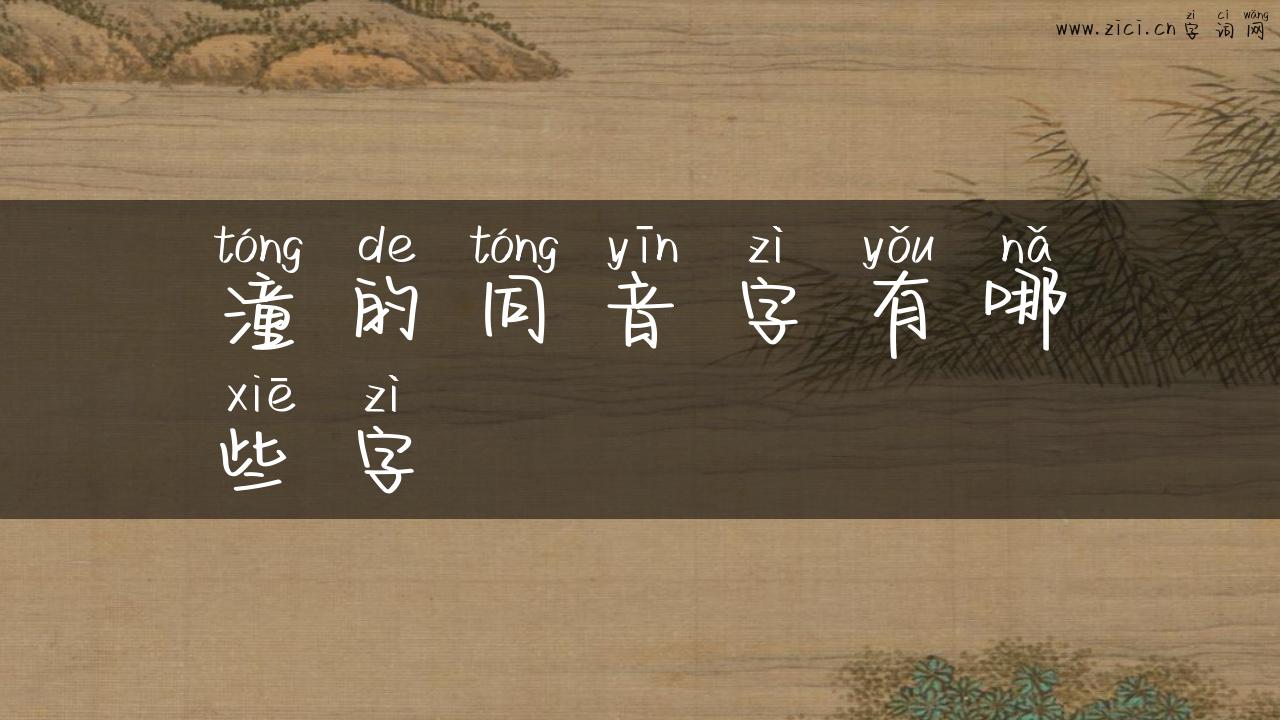 www.zici.cn 字词网
zì cí wǎng
tóng de tóng yīn zì yǒu nǎ
潼的同音字有哪
xiē zì
些字